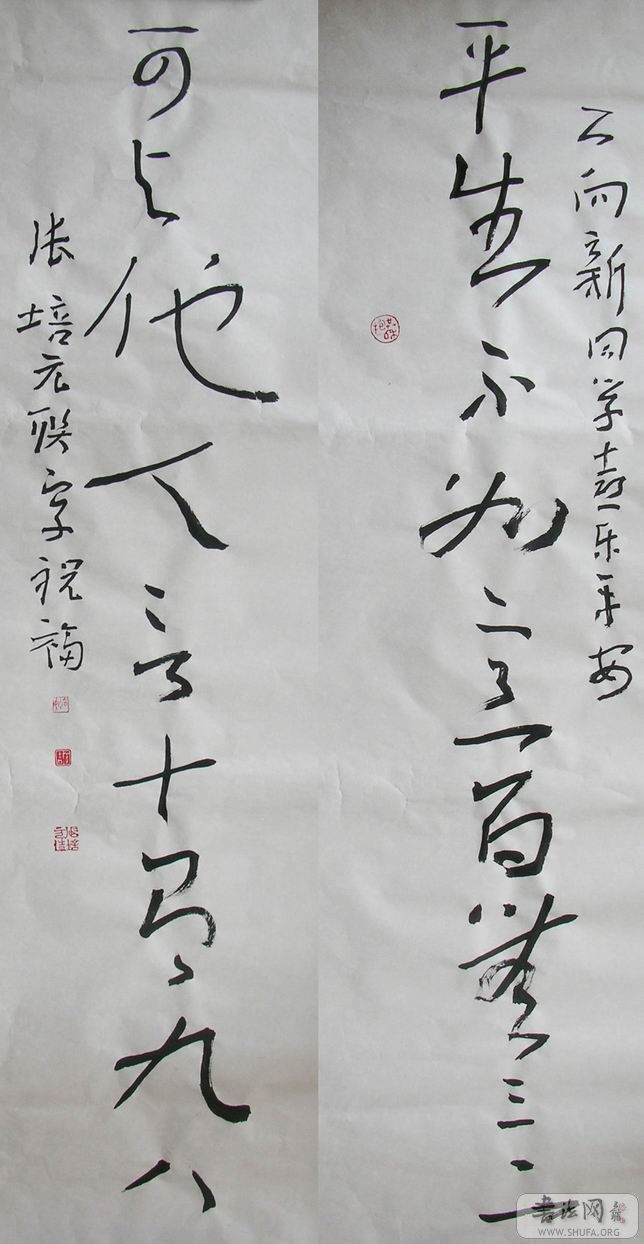 公向新同学喜乐平安
平生不如意百無三二
可与他人言十有九八
张培元联字祝福
书法网
WWW.SHUFA.ORG